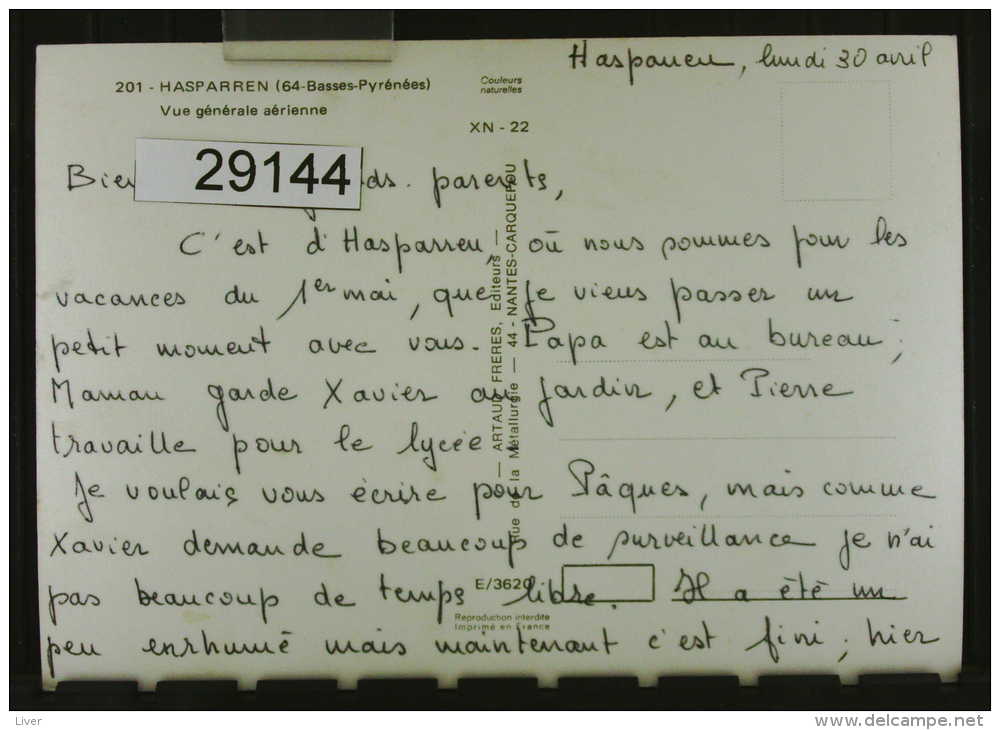 Hasparren, lundi 30 avril
201 - HASPARREN (64-Basses-Pyrénées)
Vue générale aérienne
Couleurs
naturelles
XN - 22
29144
Bien parents,
C'est d'Hasparren, où nous sommes pour les
vacances du 1er mai, que je viens passer un
petit moment avec vous. Papa est au bureau ;
Maman garde Xavier au jardin, et Pierre
travaille pour le lycée.
Je voulais vous écrire pour Pâques, mais comme
Xavier demande beaucoup de surveillance je n'ai
pas beaucoup de temps libre. Il a été un
peu enrhumé mais maintenant c'est fini ; hier
— ARTAUD FRERES, Editeurs —
Rue de la Métallurgie — 44 - NANTES-CARQUEFOU
E/3620
Reproduction interdite
Imprimé en France
Liver
www.delcampe.net